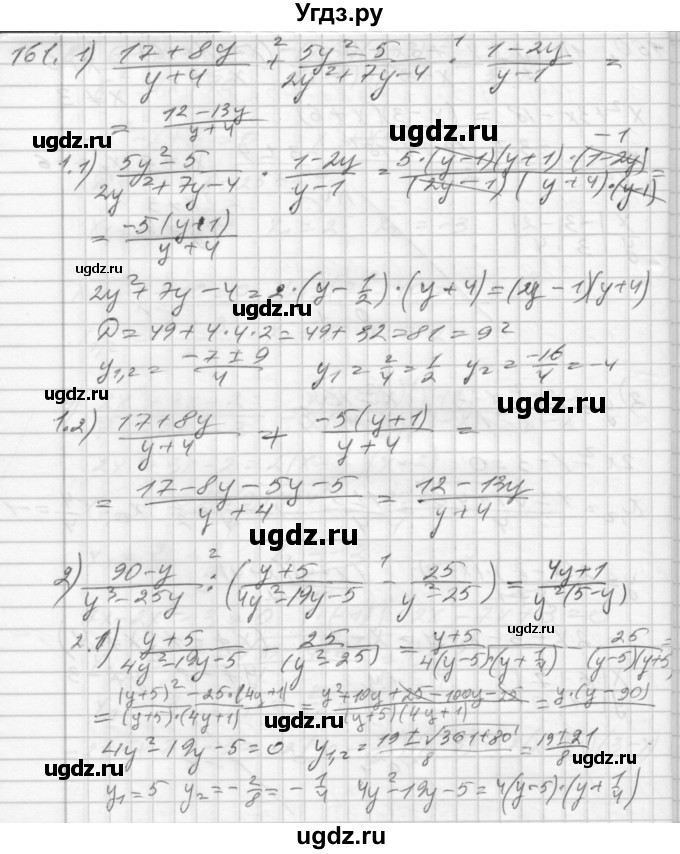 Угдз.ру
161. 1) (17+8y)/(y+4) +² (5y²-5)/(2y²+7y-4) ·¹ (1-2y)/(y-1) =
= (12-13y)/(y+4)
ugdz.ru ugdz.ru ugdz.ru
1.1) (5y²-5)/(2y²+7y-4) · (1-2y)/(y-1) = (5·(y-1)(y+1)·(1-2y) -1)/((2y-1)(y+4)·(y-1)) =
= (-5(y+1))/(y+4)
ugdz.ru ugdz.ru
2y²+7y-4=2·(y-1/2)·(y+4)=(2y-1)(y+4)
D=49+4·4·2=49+32=81=9²
y1,2 = (-7±9)/4 y1=2/4=1/2 y2=-16/4=-4
ugdz.ru ugdz.ru
1.2) (17+8y)/(y+4) + (-5(y+1))/(y+4) =
ugdz.ru
= (17-8y-5y-5)/(y+4) = (12-13y)/(y+4)
ugdz.ru ugdz.ru
2) (90-y)/(y³-25y) :² ((y+5)/(4y²-19y-5) -¹ 25/(y²-25)) = (4y+1)/(y²(5-y))
ugdz.ru
2.1) (y+5)/(4y²-19y-5) - 25/(y²-25) = (y+5)/(4(y-5)·(y+1/4)) - 25/((y-5)(y+5)) =
ugdz.ru
= ((y+5)²-25·(4y+1))/((y+5)·(4y+1)) = (y²+10y+25-100y-25)/((y+5)(4y+1)) = y·(y-90)
4y²-19y-5=0 y1,2 = (19±√361+80)/8 = (19±21)/8
ugdz.ru ugdz.ru
y1=5 y2=-2/8=-1/4 4y²-19y-5=4(y-5)·(y+1/4)
ugdz.ru